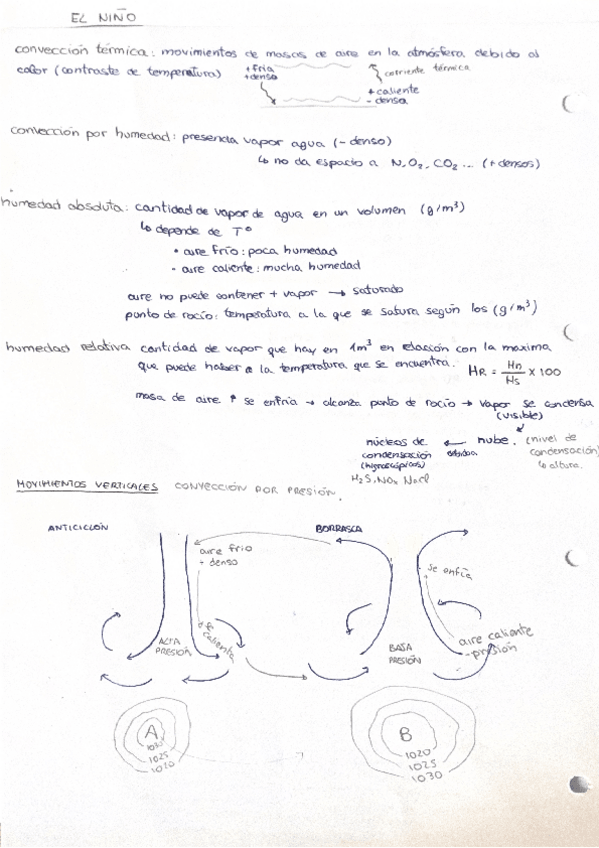 EL NIÑO
convección térmica: movimientos de masas de aire en la atmósfera debido al
calor (contraste de temperatura) +fría +densa corriente térmica
+ caliente - densa
convección por humedad: presencia vapor agua (- denso)
↳ no da espacio a N, O2, CO2 ... (+ densos)
humedad absoluta: cantidad de vapor de agua en un volumen (g/m³)
↳ depende de Tº
• aire frío: poca humedad
- aire caliente: mucha humedad
aire no puede contener + vapor → saturado
punto de rocío: temperatura a la que se satura según los (g/m³)
humedad relativa cantidad de vapor que hay en 1m³ en relación con la maxima
que puede haber a la temperatura que se encuentra. HR = Hn/Hs x 100
masa de aire ↑ se enfría → alcanza punto de rocío → vapor se condensa
(visible)
núcleos de condensación ← nube. (nivel de condensación)
(higroscópicos) ↳ altura.
H2S, NOx NaCl
MOVIMIENTOS VERTICALES CONVECCIÓN POR PRESIÓN.
ANTICICLÓN BORRASCA
aire frío
+ denso
se enfría
se calienta
ALTA PRESIÓN
BAJA PRESIÓN
aire caliente
- presión
A
1030
1025
1020
B
1020
1025
1030